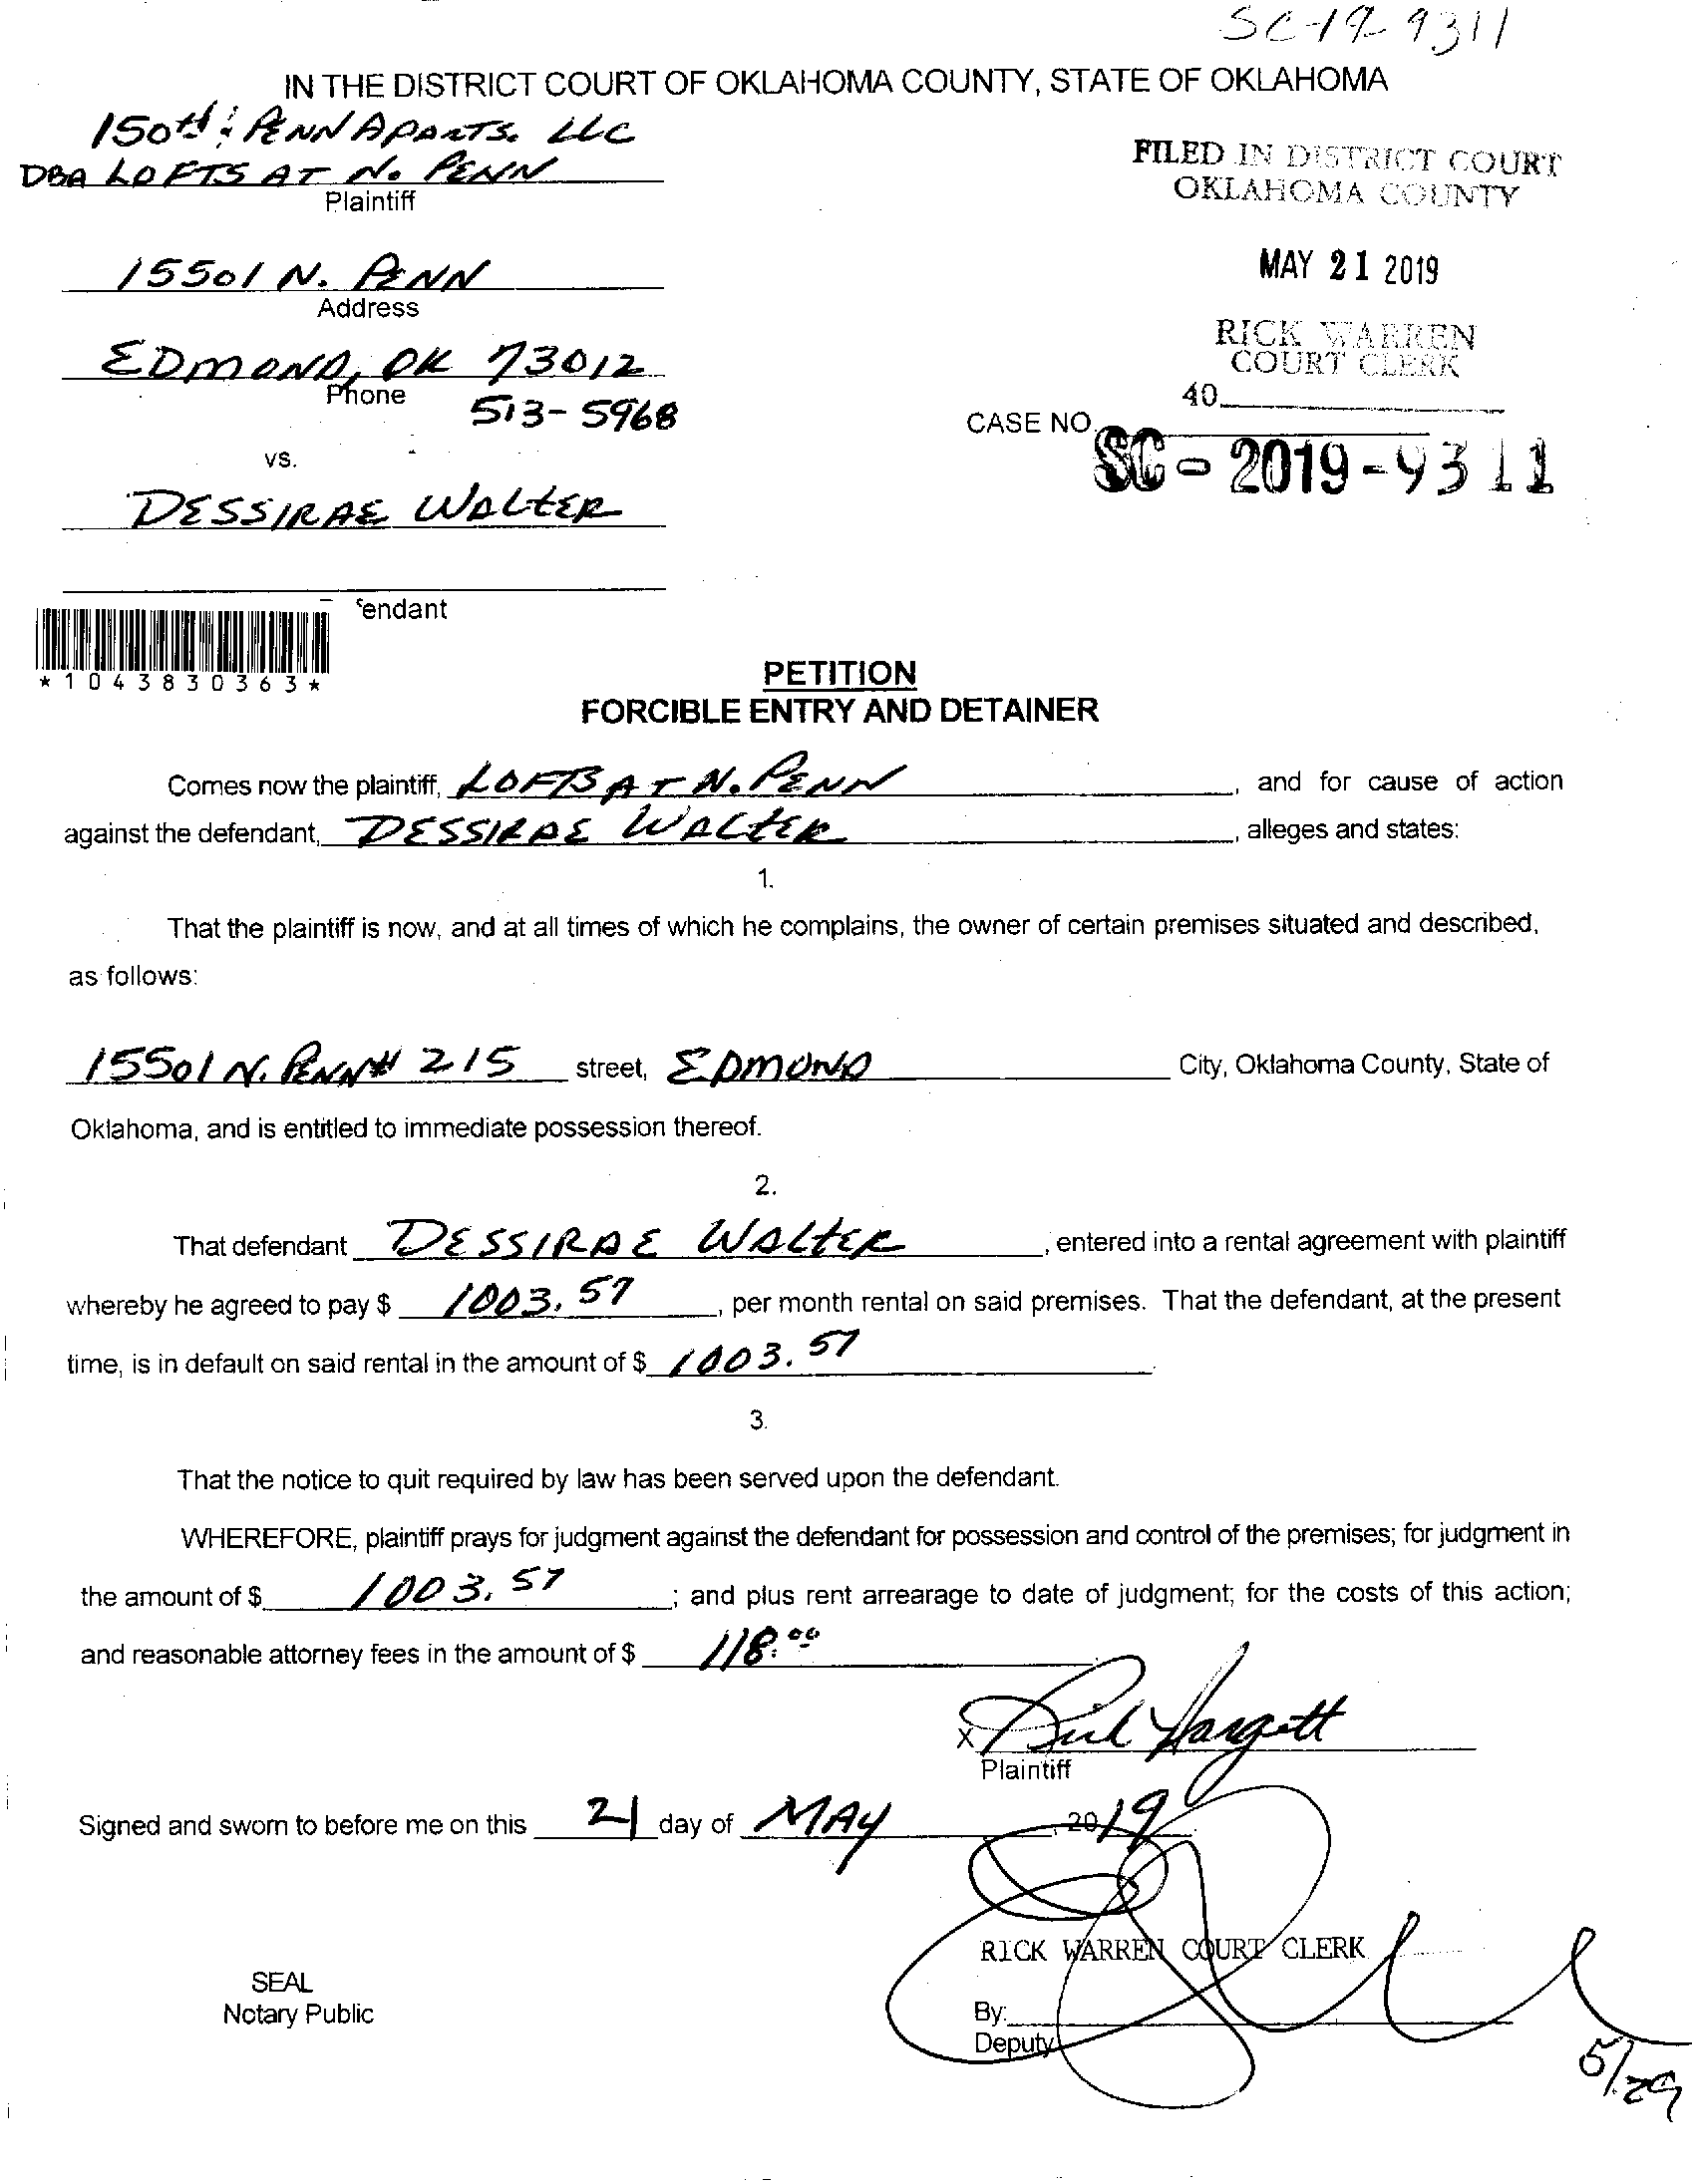 SC-19-9311
IN THE DISTRICT COURT OF OKLAHOMA COUNTY, STATE OF OKLAHOMA
150th & PENN APARTS. LLC
DBA LOFTS AT N. PENN
Plaintiff
FILED IN DISTRICT COURT
OKLAHOMA COUNTY
MAY 21 2019
RICK WARREN
COURT CLERK
40
15501 N. PENN
Address
EDMOND, OK 73012
Phone
513-5968
CASE NO.
SC-2019-9311
vs.
DESSIRAE WALTER
endant
*1043830363*
PETITION
FORCIBLE ENTRY AND DETAINER
Comes now the plaintiff, LOFTS AT N. PENN, and for cause of action
against the defendant, DESSIRAE WALTER, alleges and states:
1.
That the plaintiff is now, and at all times of which he complains, the owner of certain premises situated and described,
as follows:
15501 N. PENN # 215 street, EDMOND City, Oklahoma County, State of
Oklahoma, and is entitled to immediate possession thereof.
2.
That defendant DESSIRAE WALTER, entered into a rental agreement with plaintiff
whereby he agreed to pay $ 1003.57, per month rental on said premises. That the defendant, at the present
time, is in default on said rental in the amount of $ 1003.57.
3.
That the notice to quit required by law has been served upon the defendant.
WHEREFORE, plaintiff prays for judgment against the defendant for possession and control of the premises; for judgment in
the amount of $ 1003.57; and plus rent arrearage to date of judgment; for the costs of this action;
and reasonable attorney fees in the amount of $ 118.00
X Hargett
Plaintiff
Signed and sworn to before me on this 21 day of MAY, 2019
RICK WARREN COURT CLERK
SEAL
Notary Public
By:
Deputy
5/29